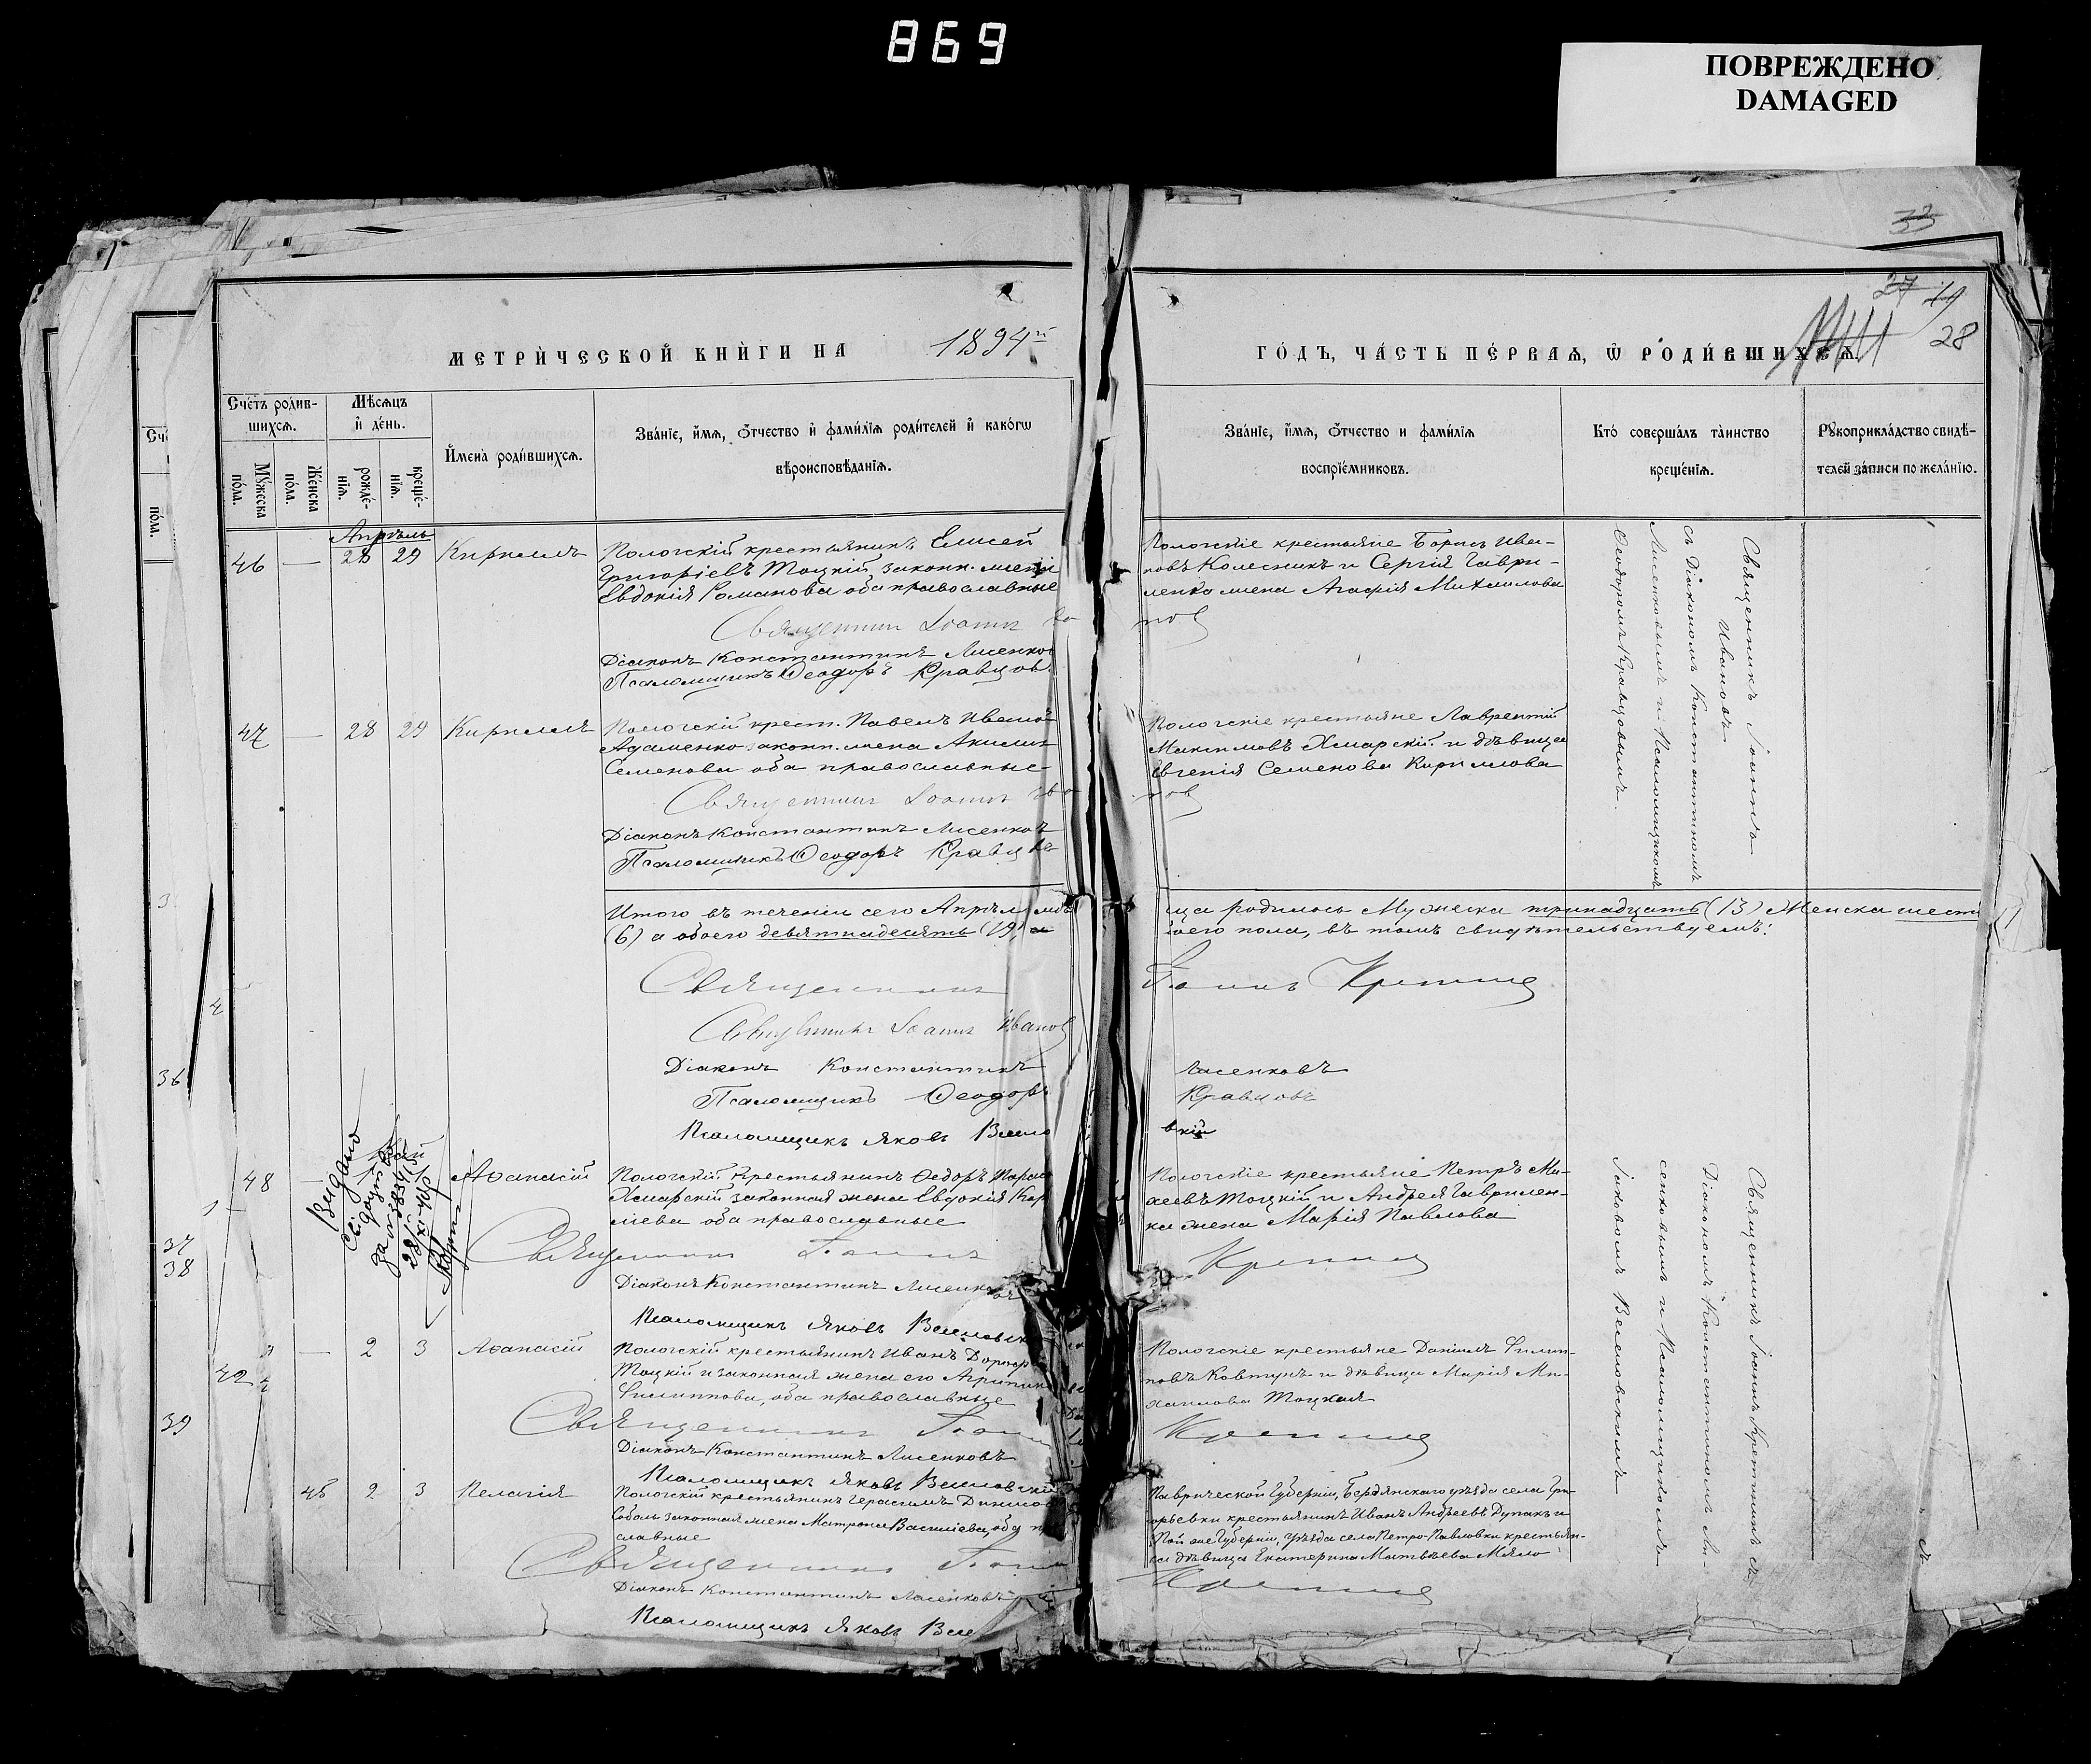 869
ПОВРЕЖДЕНО
DAMAGED
33
27
19
28
МЕТРИ́ЧЕСКОЙ КНИ́ГИ НА 1894й
ГО́ДЪ, ЧА́СТЬ ПЕ́РВАѦ, Ѡ РОДИ́ВШИХСѦ
Сче́тъ роди́в-
шихсѧ.
Мѣ́сѧцъ
и де́нь.
Имена̀ роди́вшихсѧ.
Зва́нїе, и́мѧ, о́тчество и фами́лїѧ роди́телей и како́гѡ
вѣроисповѣ́данїѧ.
Зва́нїе, и́мѧ, о́тчество и фами́лїѧ
воспрїе́мниковъ.
Кто̀ соверша́лъ та́инство
креще́нїѧ.
Рꙋкоприкла́дство свидѣ́-
телей за́писи по жела́нїю.
Мꙋ́жеска
по́ла.
Же́нска
по́ла.
рожде́-
нїѧ.
креще́-
нїѧ.
по́ла.
Апрѣль
46 — 28 29 Кириллъ
Пологскій крестьянинъ Елисей
Григоріевъ Тоцкій законн. жена
Евдокія Романова оба православные
Священникъ Іоаннъ Ива
нов
Діаконъ Константинъ Лисенков
Псаломщикъ Ѳеодоръ Кравцовъ
Пологскіе крестьяне Борисъ Ива-
новъ Колесникъ и Сергія Гаври-
ленко жена Агафія Михаилова
Священникъ Іоаннъ
Ивановъ
съ Діакономъ Константиномъ
Лисенковымъ и Псаломщикомъ
Ѳеодоромъ Кравцовымъ.
47 — 28 29 Кириллъ
Пологскій крест. Павелъ Иванов
Адаменко законн. жена Акилина
Семенова оба православные
Священникъ Іоаннъ Ива
нов
Діаконъ Константинъ Лисенковъ
Псаломщикъ Ѳеодоръ Кравцовъ
Пологскіе крестьяне Лаврентій
Максимовъ Хмарскій и дѣвица
Евгенія Семенова Кириллова
Итого въ теченіи сего Апрѣля мѣся
ца родилось Мужеска тринадцать (13) Женска шесть
(6) а обоего девятнадесять (19) а
оего пола, въ томъ свидѣтельствуемъ:
Священникъ Іоаннъ Крепкин
Священникъ Іоаннъ Иванов
Діаконъ Константинъ Лисенковъ
Псаломщикъ Ѳеодоръ Кравцовъ
Псаломщикъ Яковъ Весело
вскій
36
Май
Видано
48 — Аѳанасій
Пологскій крестьянинъ Ѳедоръ Тарас
Хмарскій законная жена Евдокія Кар
піева оба православные
Священникъ Іоаннъ
Діаконъ Константинъ Лисенковъ
Псаломщикъ Яковъ Веселовскій
Пологскіе крестьяне Петръ Ми-
хеевъ Тоцкій и Андрея Гаврилен-
ка жена Марія Павлова
Священникъ Іоаннъ Крепкинъ съ
Діакономъ Константиномъ Ли-
сенковымъ и Псаломщикомъ
Іаковомъ Веселовскимъ
37
38
42
39
— 2 3 Аѳанасій
Пологскій крестьянинъ Иванъ Дороф
Тоцкій и законная жена его Агрипина
Филиппова, оба православные
Священникъ Іоаннъ
Діаконъ Константинъ Лисенковъ
Псаломщикъ Яковъ Веселовскій
Пологскіе крестьяне Даніилъ Филип-
повъ Ковтунъ и дѣвица Марія Ми-
хаилова Тоцкая
45 2 3 Пелагія
Пологскій крестьянинъ Герасимъ Данилов
Соболь законная жена Матрона Василіева, оба п
славные
Священникъ Іоаннъ
Діаконъ Константинъ Лисенковъ
Псаломщикъ Яковъ Весе
Таврической Губерніи, Бердянскаго уѣзда села Гри-
горьевки крестьянинъ Иванъ Андреевъ Дупакъ и
Той же Губерніи, Уѣзда села Петро-Павловки крестьян-
ка дѣвица Екатерина Матвѣева Мяло